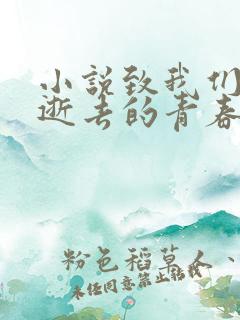 小说致我们
逝去的青春
粉色稻草人、
未经同意禁止转载